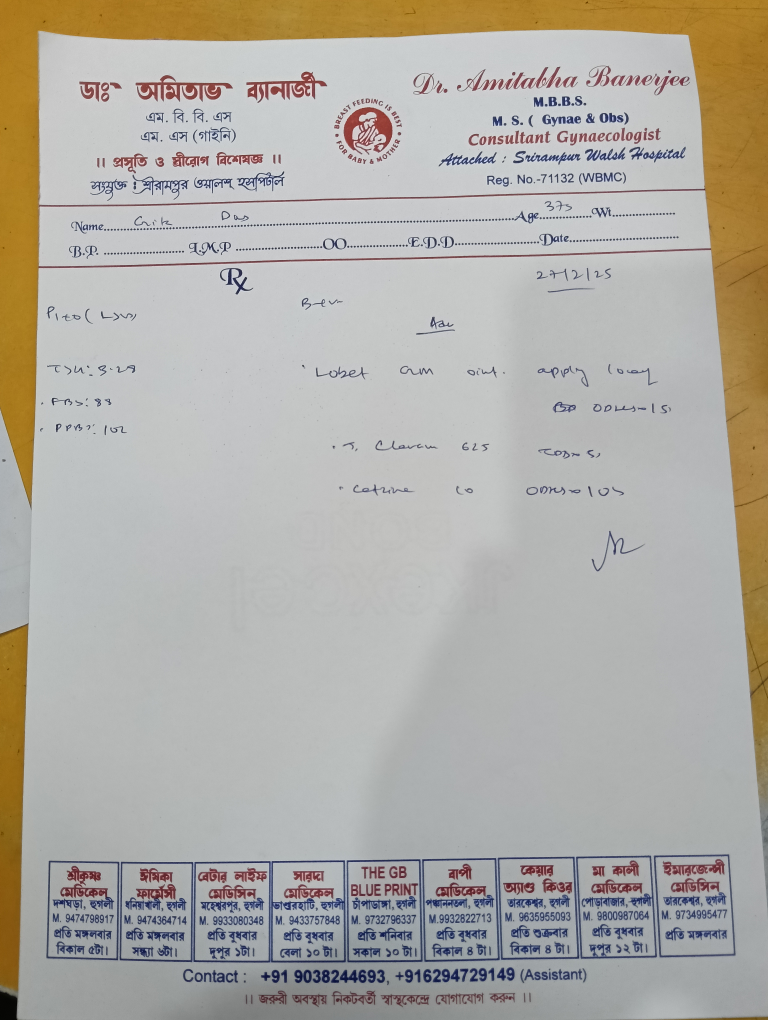 ডাঃ অমিতাভ ব্যানার্জী
এম. বি. বি. এস
এম. এস (গাইনি)
।। প্রসূতি ও স্ত্রীরোগ বিশেষজ্ঞ ।।
সংযুক্ত : শ্রীরামপুর ওয়ালশ হসপিটাল
BREAST FEEDING IS BEST
FOR BABY & MOTHER
Dr. Amitabha Banerjee
M.B.B.S.
M. S. ( Gynae & Obs)
Consultant Gynaecologist
Attached : Srirampur Walsh Hospital
Reg. No.-71132 (WBMC)
Name Das Age 37 Wt
B.P. L.M.P OO E.D.D Date
Rx
27/2/25
Adv
TSH: 3.28
Lobet GM oint. apply
FBS: 88
PPBS: 102
T. Clavam 625
Cetzine 10
শ্রীকৃষ্ণ মেডিকেল
দশঘড়া, হুগলী
M. 9474798917
প্রতি মঙ্গলবার
বিকাল ৫টা।
ঈষিকা ফার্মেসী
ধনিয়াখালী, হুগলী
M. 9474364714
প্রতি মঙ্গলবার
সন্ধ্যা ৬টা।
বেটার লাইফ মেডিসিন
মহেশ্বরপুর, হুগলী
M. 9933080348
প্রতি বুধবার
দুপুর ১টা।
সারদা মেডিকেল
ভাণ্ডারহাটি, হুগলী
M. 9433757848
প্রতি বুধবার
বেলা ১০ টা।
THE GB BLUE PRINT
চাঁপাডাঙ্গা, হুগলী
M. 9732796337
প্রতি শনিবার
সকাল ১০ টা।
বাপী মেডিকেল
পঞ্চাননতলা, হুগলী
M.9932822713
প্রতি বুধবার
বিকাল ৪ টা।
কেয়ার অ্যাণ্ড কিওর
তারকেশ্বর, হুগলী
M. 9635955093
প্রতি শুক্রবার
বিকাল ৪ টা।
মা কালী মেডিকেল
পোড়াবাজার, হুগলী
M. 9800987064
প্রতি বুধবার
দুপুর ১২ টা।
ইমারজেন্সী মেডিসিন
তারকেশ্বর, হুগলী
M. 9734995477
প্রতি মঙ্গলবার
Contact : +91 9038244693, +916294729149 (Assistant)
।। জরুরী অবস্থায় নিকটবর্তী স্বাস্থকেন্দ্রে যোগাযোগ করুন ।।